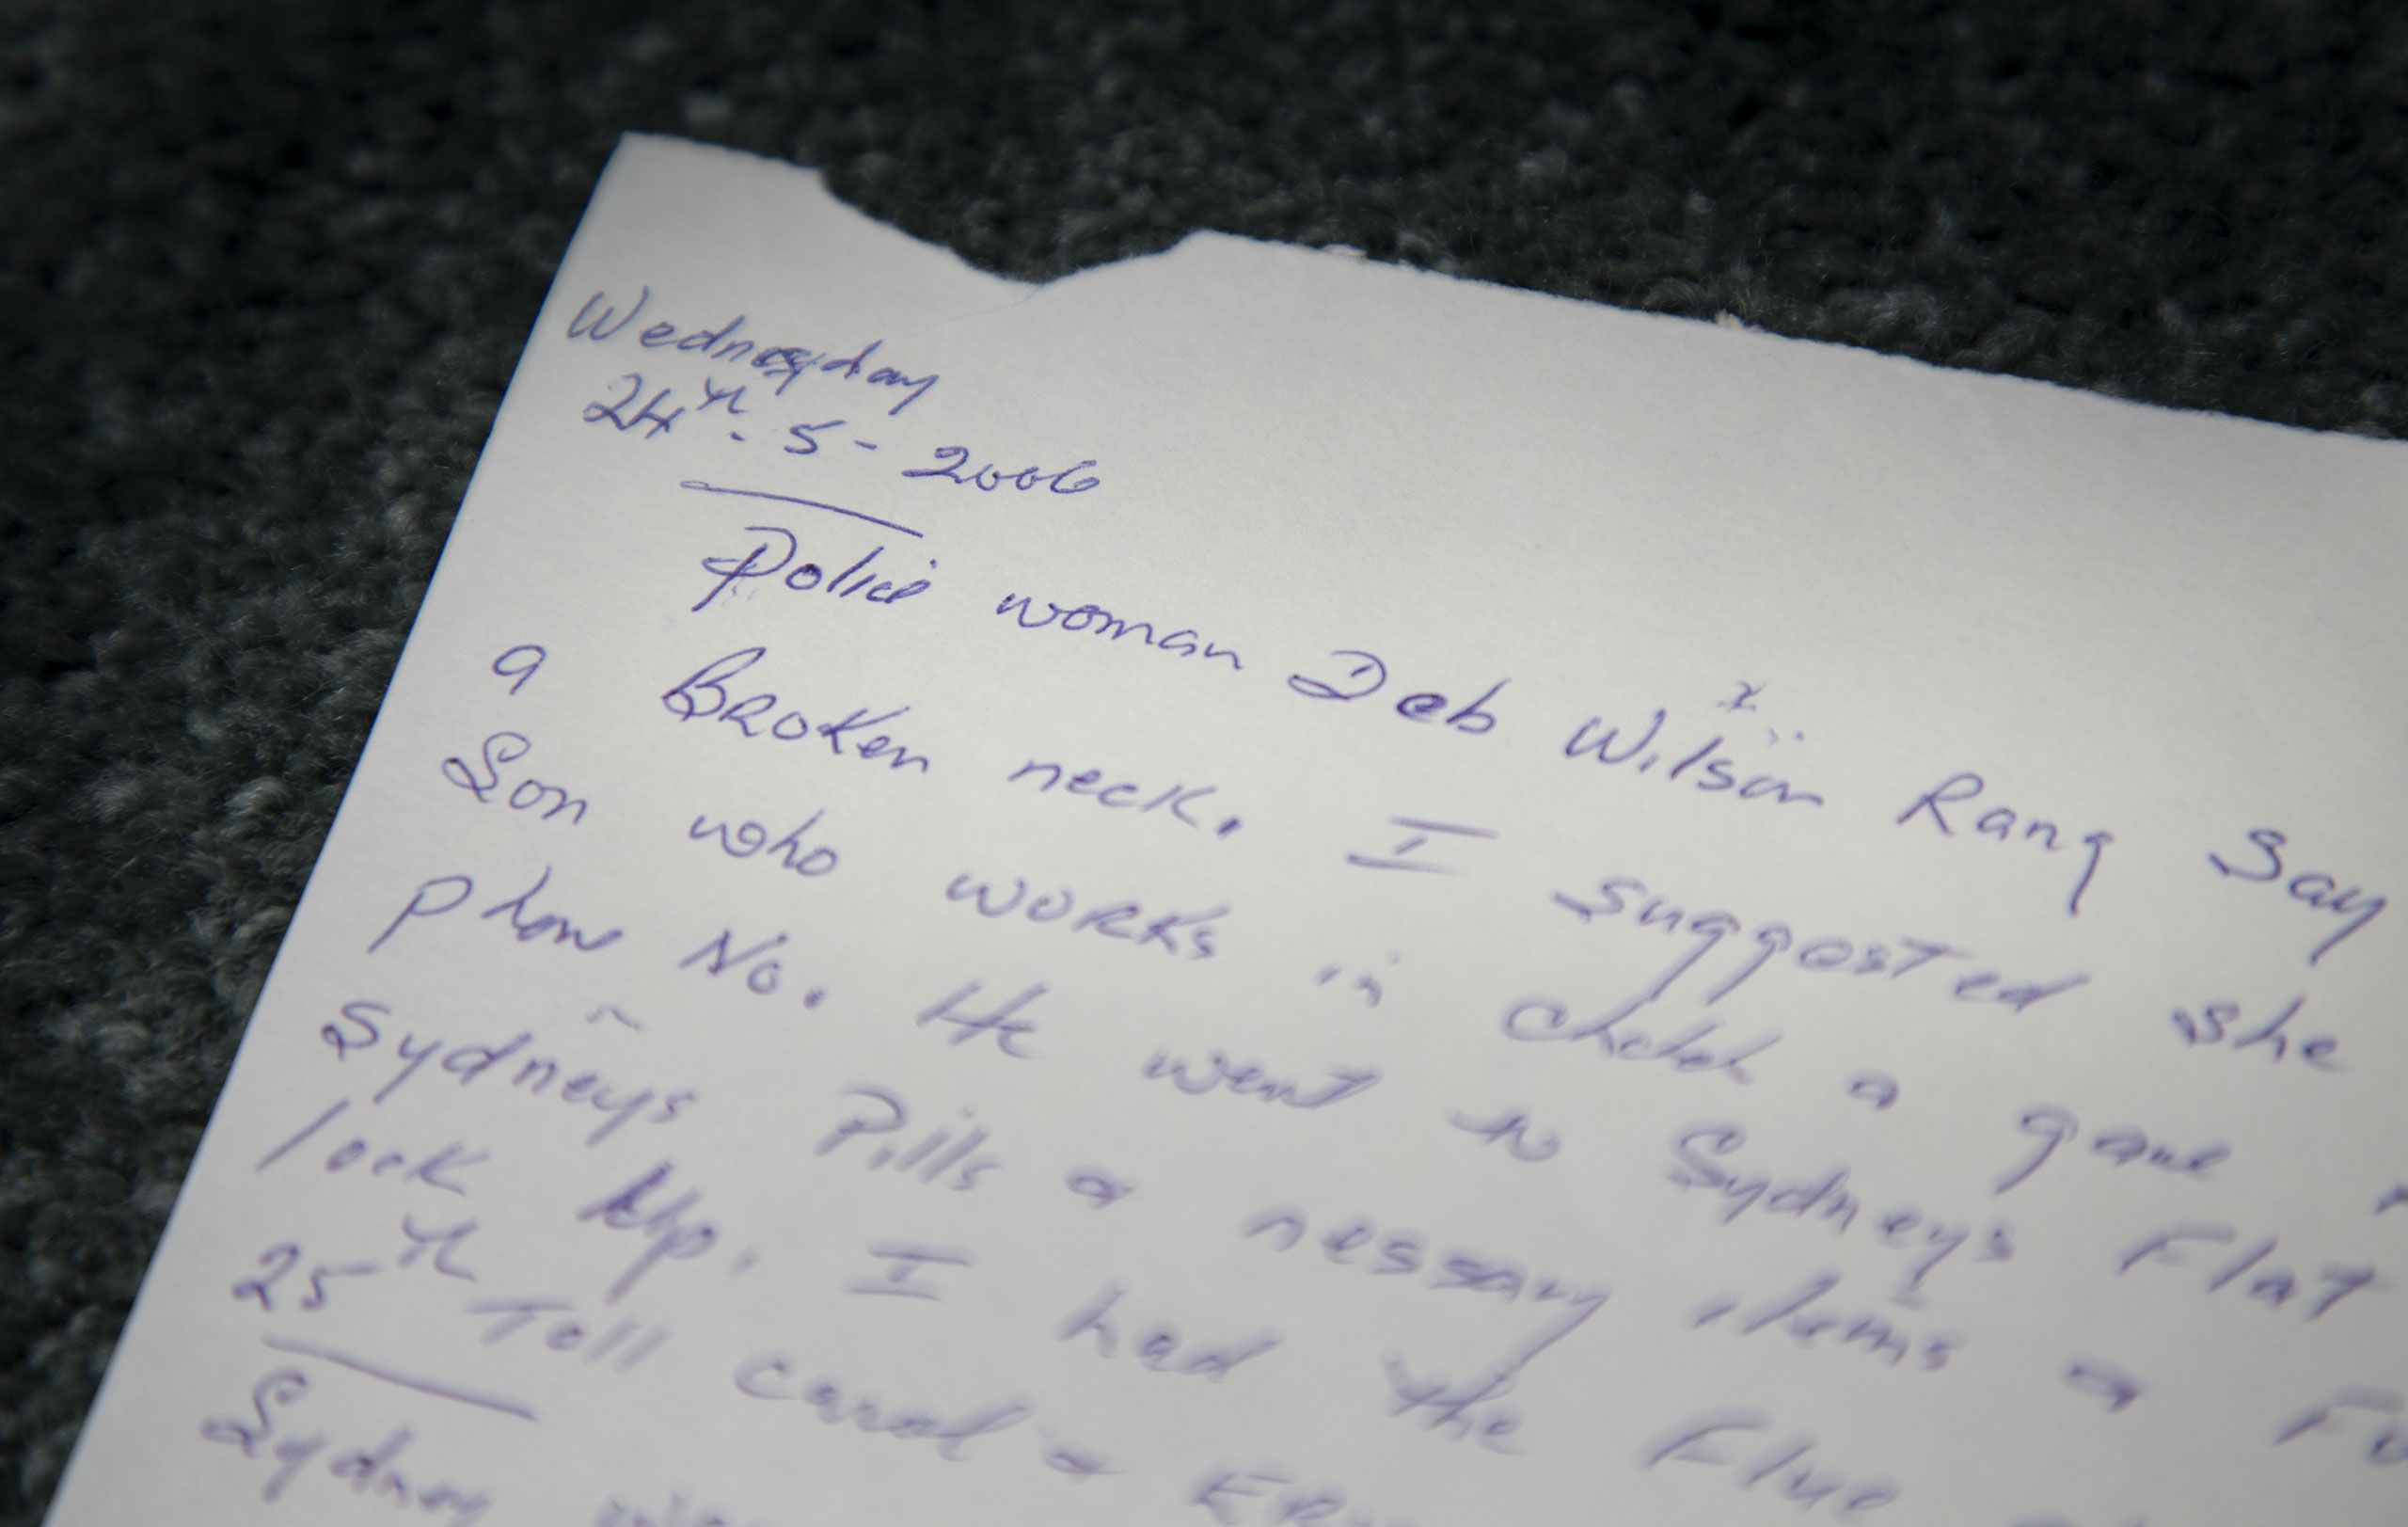 Wednesday
24th. 5 - 2006
Police woman Deb Wilson Rang Say
a Broken neck. I suggosted she
Son who works in a gave
phone No. He went to Sydneys Flat
Sydneys Pills & nessary items &
lock Up. I had the Flue
25th Tell carol &
Sydney